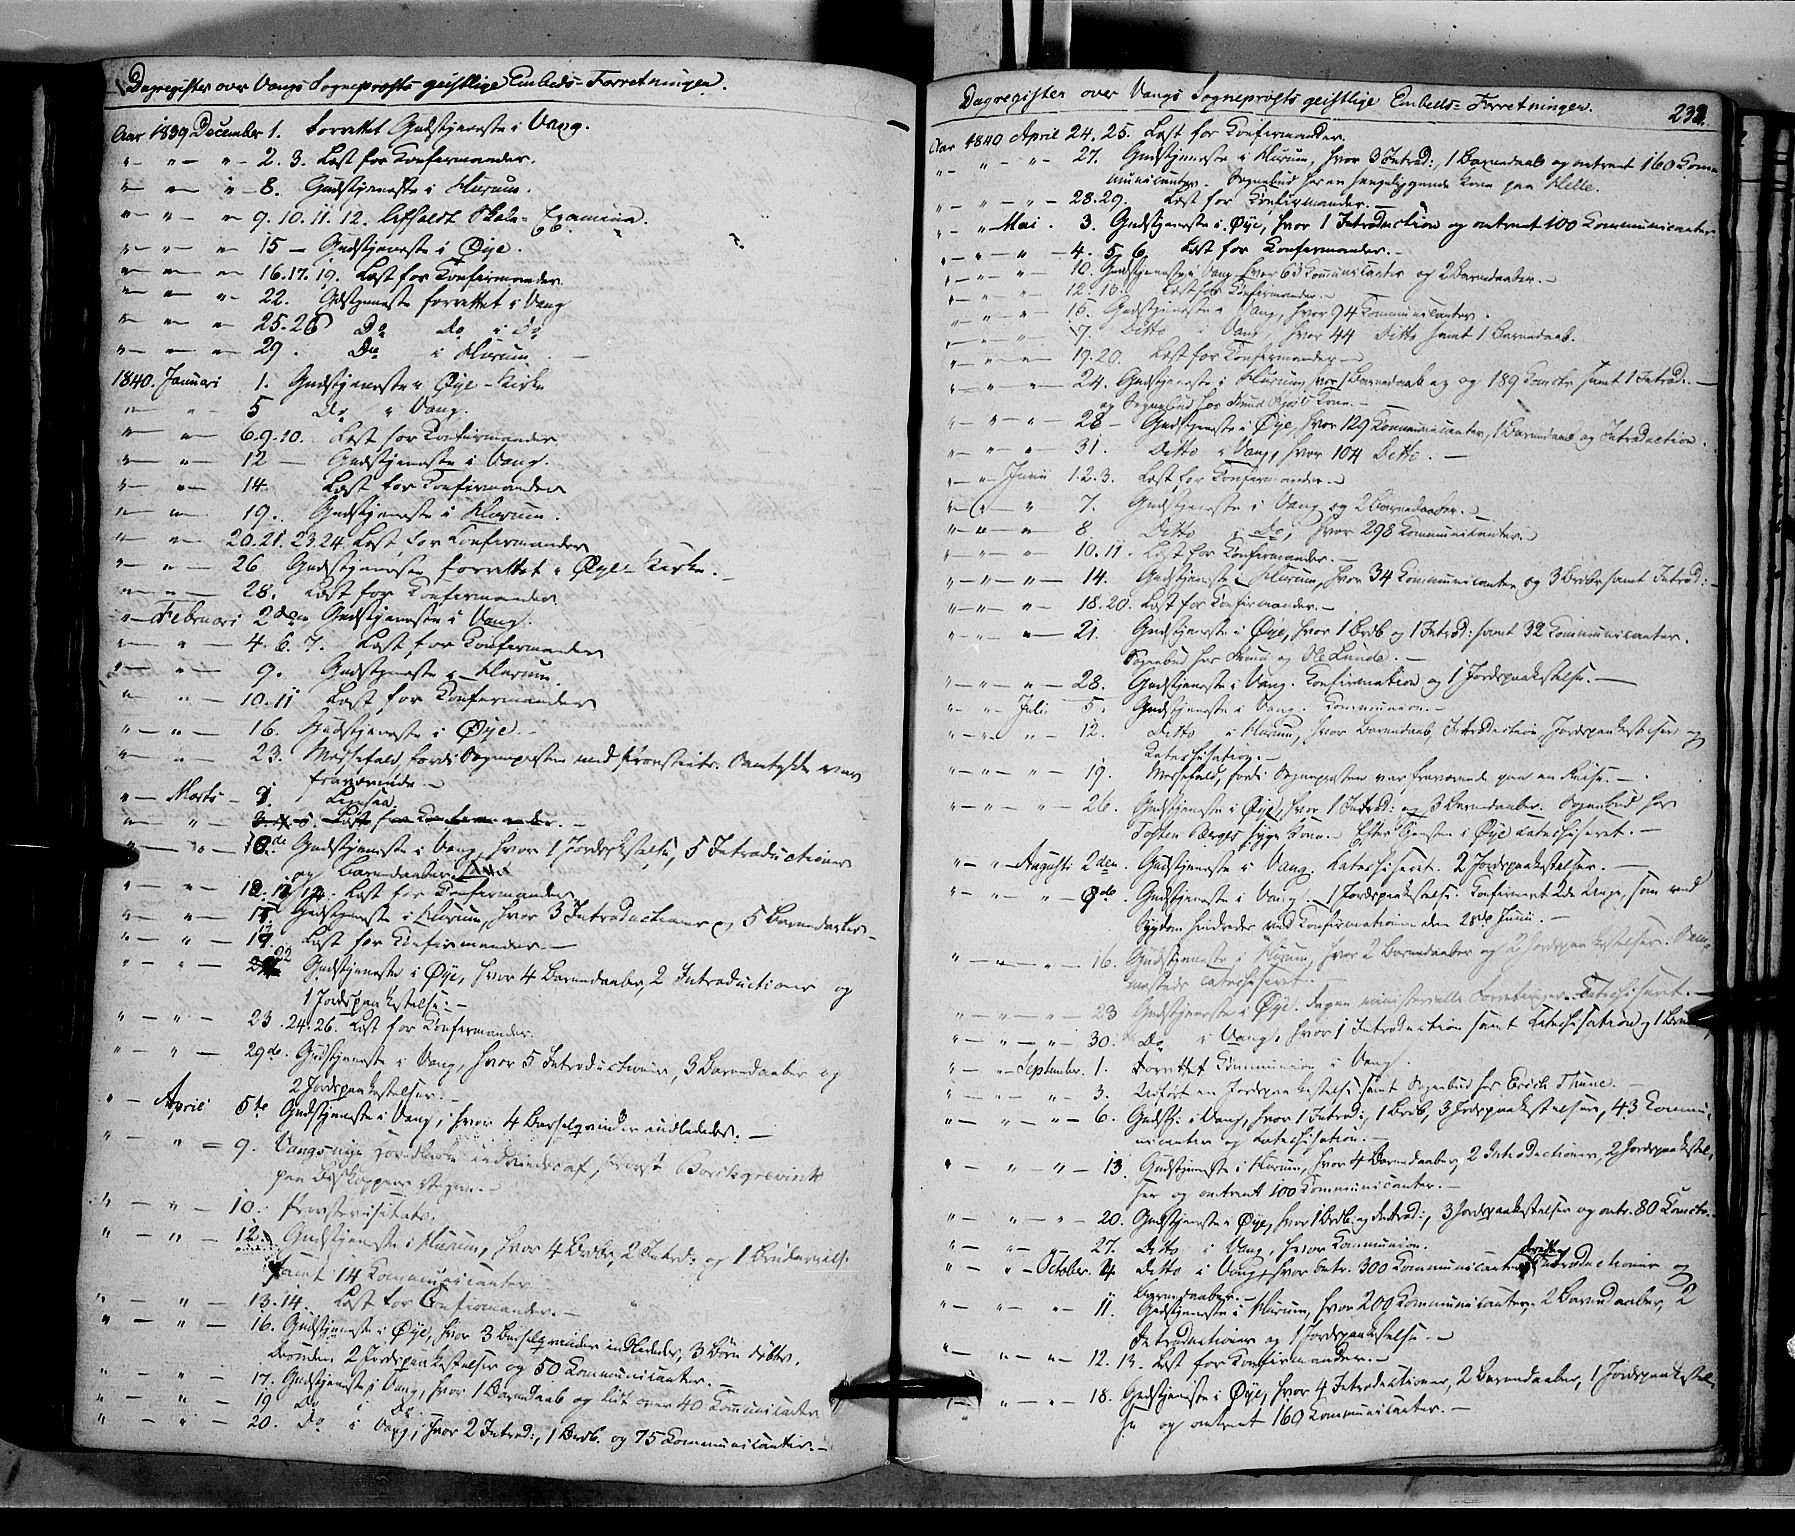 Dagregister over Vangs Sognepræsts geistlige Embeds-Forretninger.
Aar 1839 December 1. Forrettet Gudstjeneste i Vang.
" — " — " — 2. 3. Læst for Konfirmander.
" — " — " — 8. Gudstjeneste i Hurum.
" — " — " — 9. 10. 11. 12. Afholdt Skole-Examina.
" — " — " — 15 — Gudstjeneste i Øye.
" — " — " — 16. 17. 19. Læst for Konfirmander
" — " — " — 22. Gudstjeneste forrettet i Vang
" — " — " — 25. 26 Do Do i Do
" — " — " — 29. Do i Hurum.
1840. Januari 1. Gudstjeneste i Øye-Kirke
" — " — 5 Do i Vang.
" — " — 6. 9. 10. Læst for Konfirmander
" — " — 12 — Gudstjeneste i Vang.
" — " — 14. Læst for Konfirmander
" — " — 19. Gudstjeneste i Hurum.
" — " — 20. 21. 23. 24. Læst for Konfirmander
" — " — 26 Gudstjeneste forrettet i Øye-Kirke. —
" — " — 28. Læst for Konfirmander
" — Februari 2den Gudstjeneste i Vang.
" — " — 4. 6. 7. Læst for Konfirmander
" — " — 9. Gudstjeneste i Hurum.
" — " — 10. 11 Læst for Konfirmander
" — " — 16. Gudstjeneste i Øye. —
" — " — 23. Messefald, fordi Sognepræsten med Samtykke var
fraværende —
" — Marts — 1. Ligesaa.
" — " — 3. 4. 5. Læst for Konfirmander. —
" — " — 8de Gudstjeneste i Vang, hvor 1 Jordspkstelse, 5 Introductioner
og Barnedaaber
" — " — 12. Læst for Konfirmander
" — " — 15 Gudstjeneste i Hurum, hvor 3 Introductioner og 5 Barnedaaber —
" — " — 19. Læst for Konfirmander. —
" — " — 22 Gudstjeneste i Øye, hvor 4 Barnedaaber, 2 Introductioner og
1 Jordspaakastelse. —
" — " — 23. 24. 26. Læst for Konfirmander.
" — " — 29de. Gudstjeneste i Vang, hvor 5 Introductioner, 3 Barnedaaber og
2 Jordspaakastelser. —
" — April 5te Gudstjeneste i Vang, hvor 4 Barselqvinder indlededes. —
" — " — 9. Vangs nye indviedes af Provst
paa Biskoppens Vegne. —
" — " — 10. Provstevisitats.
" — " — 12. Gudstjeneste i Hurum, hvor 4 Brdbr, 2 Introd: og 1 Brudevielse
samt 14 Kommunicanter
" — " — 13. 14. Læst for Confirmander. —
" — " — 16. Gudstjeneste i Øye, hvor 3 Barselqvinder indlededes, 3 Børn døbtes,
desuden 2 Jordspaakastelser og 50 Kommunicanter. —
" — " — 17. Gudstjeneste i Vang, hvor 1 Barnedaab og lidt over 40 Kommunicanter
" — " — 19 Do i Do.
" — " — 20. Do i Vang, hvor 2 Introd:, 1 Brdb. og 75 Kommunicanter. —
Dagregister over Vangs Sognepræsts geistlige Embeds-Forretninger. 232.
Aar 1840 April 24. 25. Læst for Konfirmander.
" — " — 27. Gudstjeneste i Hurum, hvor 3 Introd:, 1 Barnedaab og omtrent 160 Kom-
municanter. Sognebud hos en sengeliggende Kone paa Helle.
" — " — 28. 29. Læst for Konfirmander. —
" — " Mai. 3. Gudstjeneste i Øye, hvor 1 Introduction og omtrent 100 Kommunicanter
" — " — 4. 5. 6. Læst for Konfirmander. —
" — " — 10. Gudstjeneste i Vang, hvor Kommunicanter og 2 Barnedaaber. —
" — " — 12. 13. Læst for Konfirmander. —
" — " — Gudstjeneste i Vang, hvor 94 Kommunicanter.
" — " — 17. Ditto i Vang, hvor 44 Ditto samt 1 Barnedaab.
" — " — 19. 20. Læst for Konfirmander —
" — " — 24. Gudstjeneste i Hurum, hvor 1 Barnedaab og 189 Komctr samt 1 Introd: —
og Sognebud hos Knud Kone. —
" — " — 28 — Gudstjeneste i Øye, hvor 129 Kommunicanter, 1 Barnedaab og Introduction.
" — " — 31. Ditto i Vang, hvor 104 Ditto. —
" — " Junii 1. 2. 3. Læst for Konfirmander. —
" — " — 7. Gudstjeneste i Vang og 2 Barnedaaber. —
" — " — 8. Ditto i Do, hvor 298 Kommunicanter. —
" — " — 10. 11. Læst for Konfirmander. —
" — " — 14. Gudstjeneste i Hurum, hvor 34 Kommunicanter og 3 Brdbr samt Introd: —
" — " — 18. 20. Læst for Konfirmander. —
" — " — 21. Gudstjeneste i Øye, hvor 1 Brdb og 1 Introd: samt 32 Kommunicanter.
Sognebud hos og Ole Lunde. —
" — " — 28. Gudstjeneste i Vang. Konfirmation og 1 Jordspaakastelse. —
" — " Julii 5. Gudstjeneste i Vang. Kommunion. —
" — " — 12. Ditto i Hurum, hvor Barnedaab, Introduction, Jordspaakastelser og
Katechisation. —
" — " — 19. Messefald, fordi Sognepræsten var fraværende paa en Reise. —
" — " — 26. Gudstjeneste i Øye, hvor 1 Introd: og 3 Barnedaaber. Sognebud hos
Torsten Berges syge Kone. Efter Tjenesten i Øye Katechiseret. —
" — " Augusti 2den. Gudstjeneste i Vang. Katechiseret. 2 Jordspaakastelser. —
" — " — 9de. Gudstjeneste i Vang. — 1 Jordspaakastelse. Konfirmeret 2de Unge, som ved
Sygdom hindredes ved Konfirmationen den 28de Junii. —
" — " — 16. Gudstjeneste i Hurum, hvor 2 Barnedaaber og 2 Jordspaakastelser. Sam-
mesteds Catechiseret. —
" — " — 23 Gudstjeneste i Øye. Ingen ministerielle Forretninger. Catechiseret. —
" — " — 30. Do i Vang, hvor 1 Introduction samt Katechisation og 1
" — " September. 1. Forrettet Kommunion i Vang.
" — " — 3. Udført en Jordspaakastelse samt Sognebud hos Erich Thune. —
" — " — 6. Gudstj. i Vang, hvor 1 Introd:, 1 Brdb, 3 Jordspaakastelser, 43 Kommu-
nicanter og Katechisation. —
" — " — 13. Gudstjeneste i Hurum, hvor 4 Barnedaaber, 2 Introductioner, 2 Jordspaakastel-
ser og omtrent 100 Kommunicanter. —
" — " — 20. Gudstjeneste i Øye, hvor 1 Brdb: og Introd:, 3 Jordspaakastelser og omtr. 80 Komctr.
" — " — 27. Ditto i Vang, hvor Kommunion.
" — " October. 4 Ditto i Vang, hvor omtr. 300 Kommunicanter, Introductioner og
Barnedaaber. —
" — " — 11. Gudstjeneste i Hurum, hvor 200 Kommunicanter, 2 Barnedaaber, 2
Introductioner og 1 Jordspaakastelse. —
" — " — 12. 13. Læst for Konfirmander. —
" — " — 18. Gudstjeneste i Øye, hvor 4 Introductioner, 2 Barnedaaber, 1 Jordspaakastel-
se og omtrent 160 Kommunicanter. —